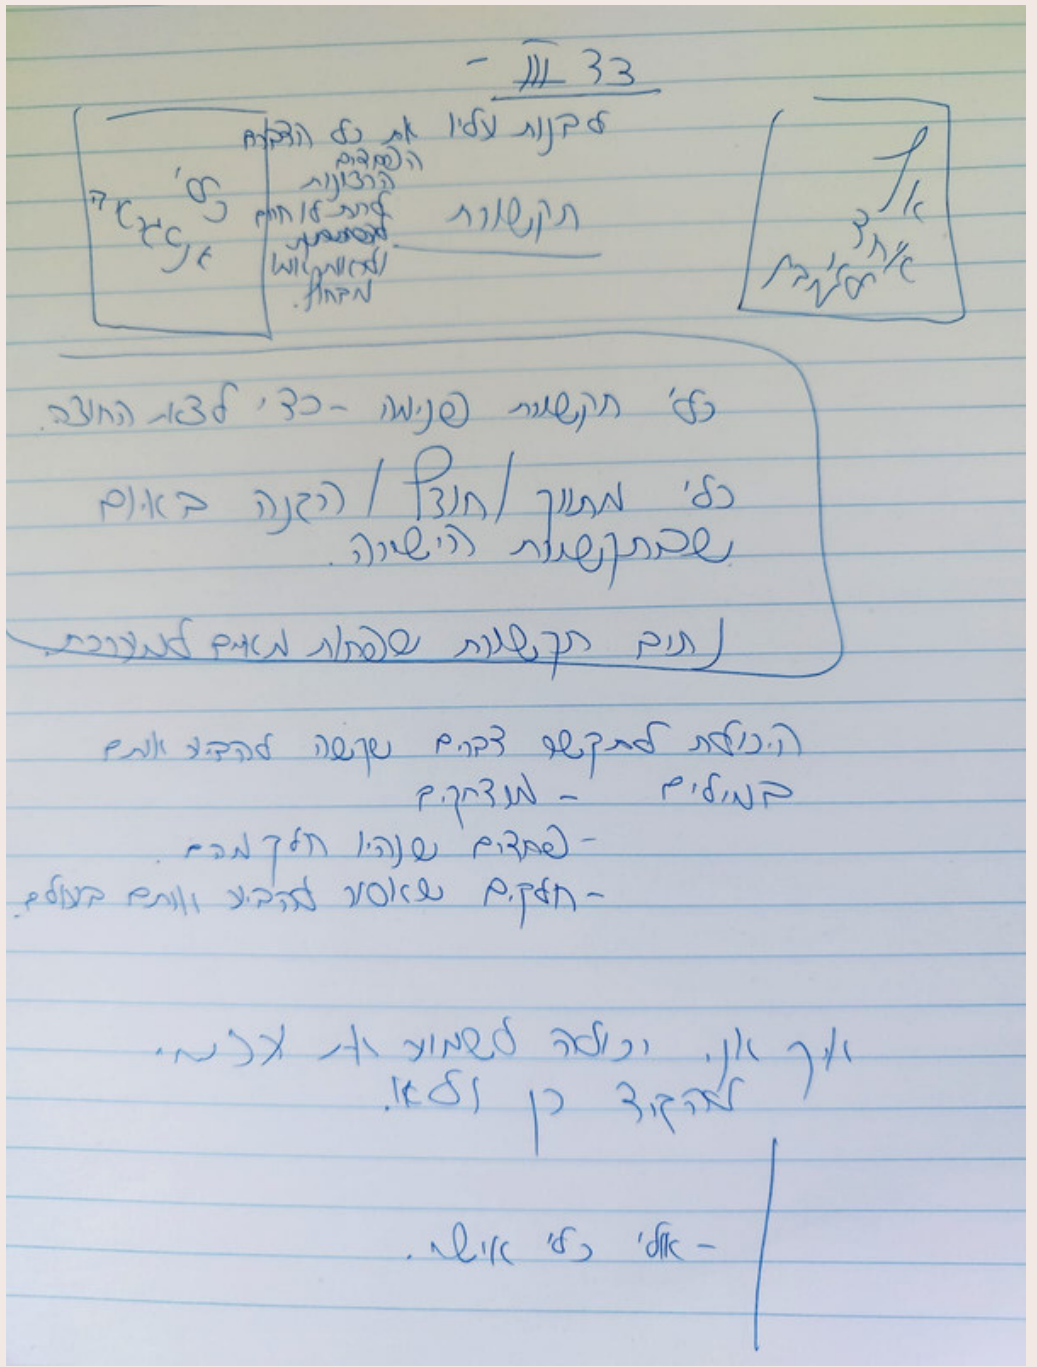 צד III -
לבנות עליו את כל הדברים
הפחדים
הרצונות
לתת לו חיים
מבחוץ.
תקשורת
או
אחד
כלי
אנרגיה
כלי תקשורת פנימה - כדי לצאת החוצה.
כלי מתווך / חוצץ / הגנה באיום
שבתקשורת הישירה.
נתיב תקשורת שפחות מאיים למערכת.
היכולת לתקשר דברים שקשה להביע אותם
במילים - מודחקים
- פחדים שנהיו חלק מהם.
- חלקים שאסור להביע אותם בעולם.
איך אני יכולה לשמוע את עצמי.
להקיד כן ולא.
- אולי כלי אישי.